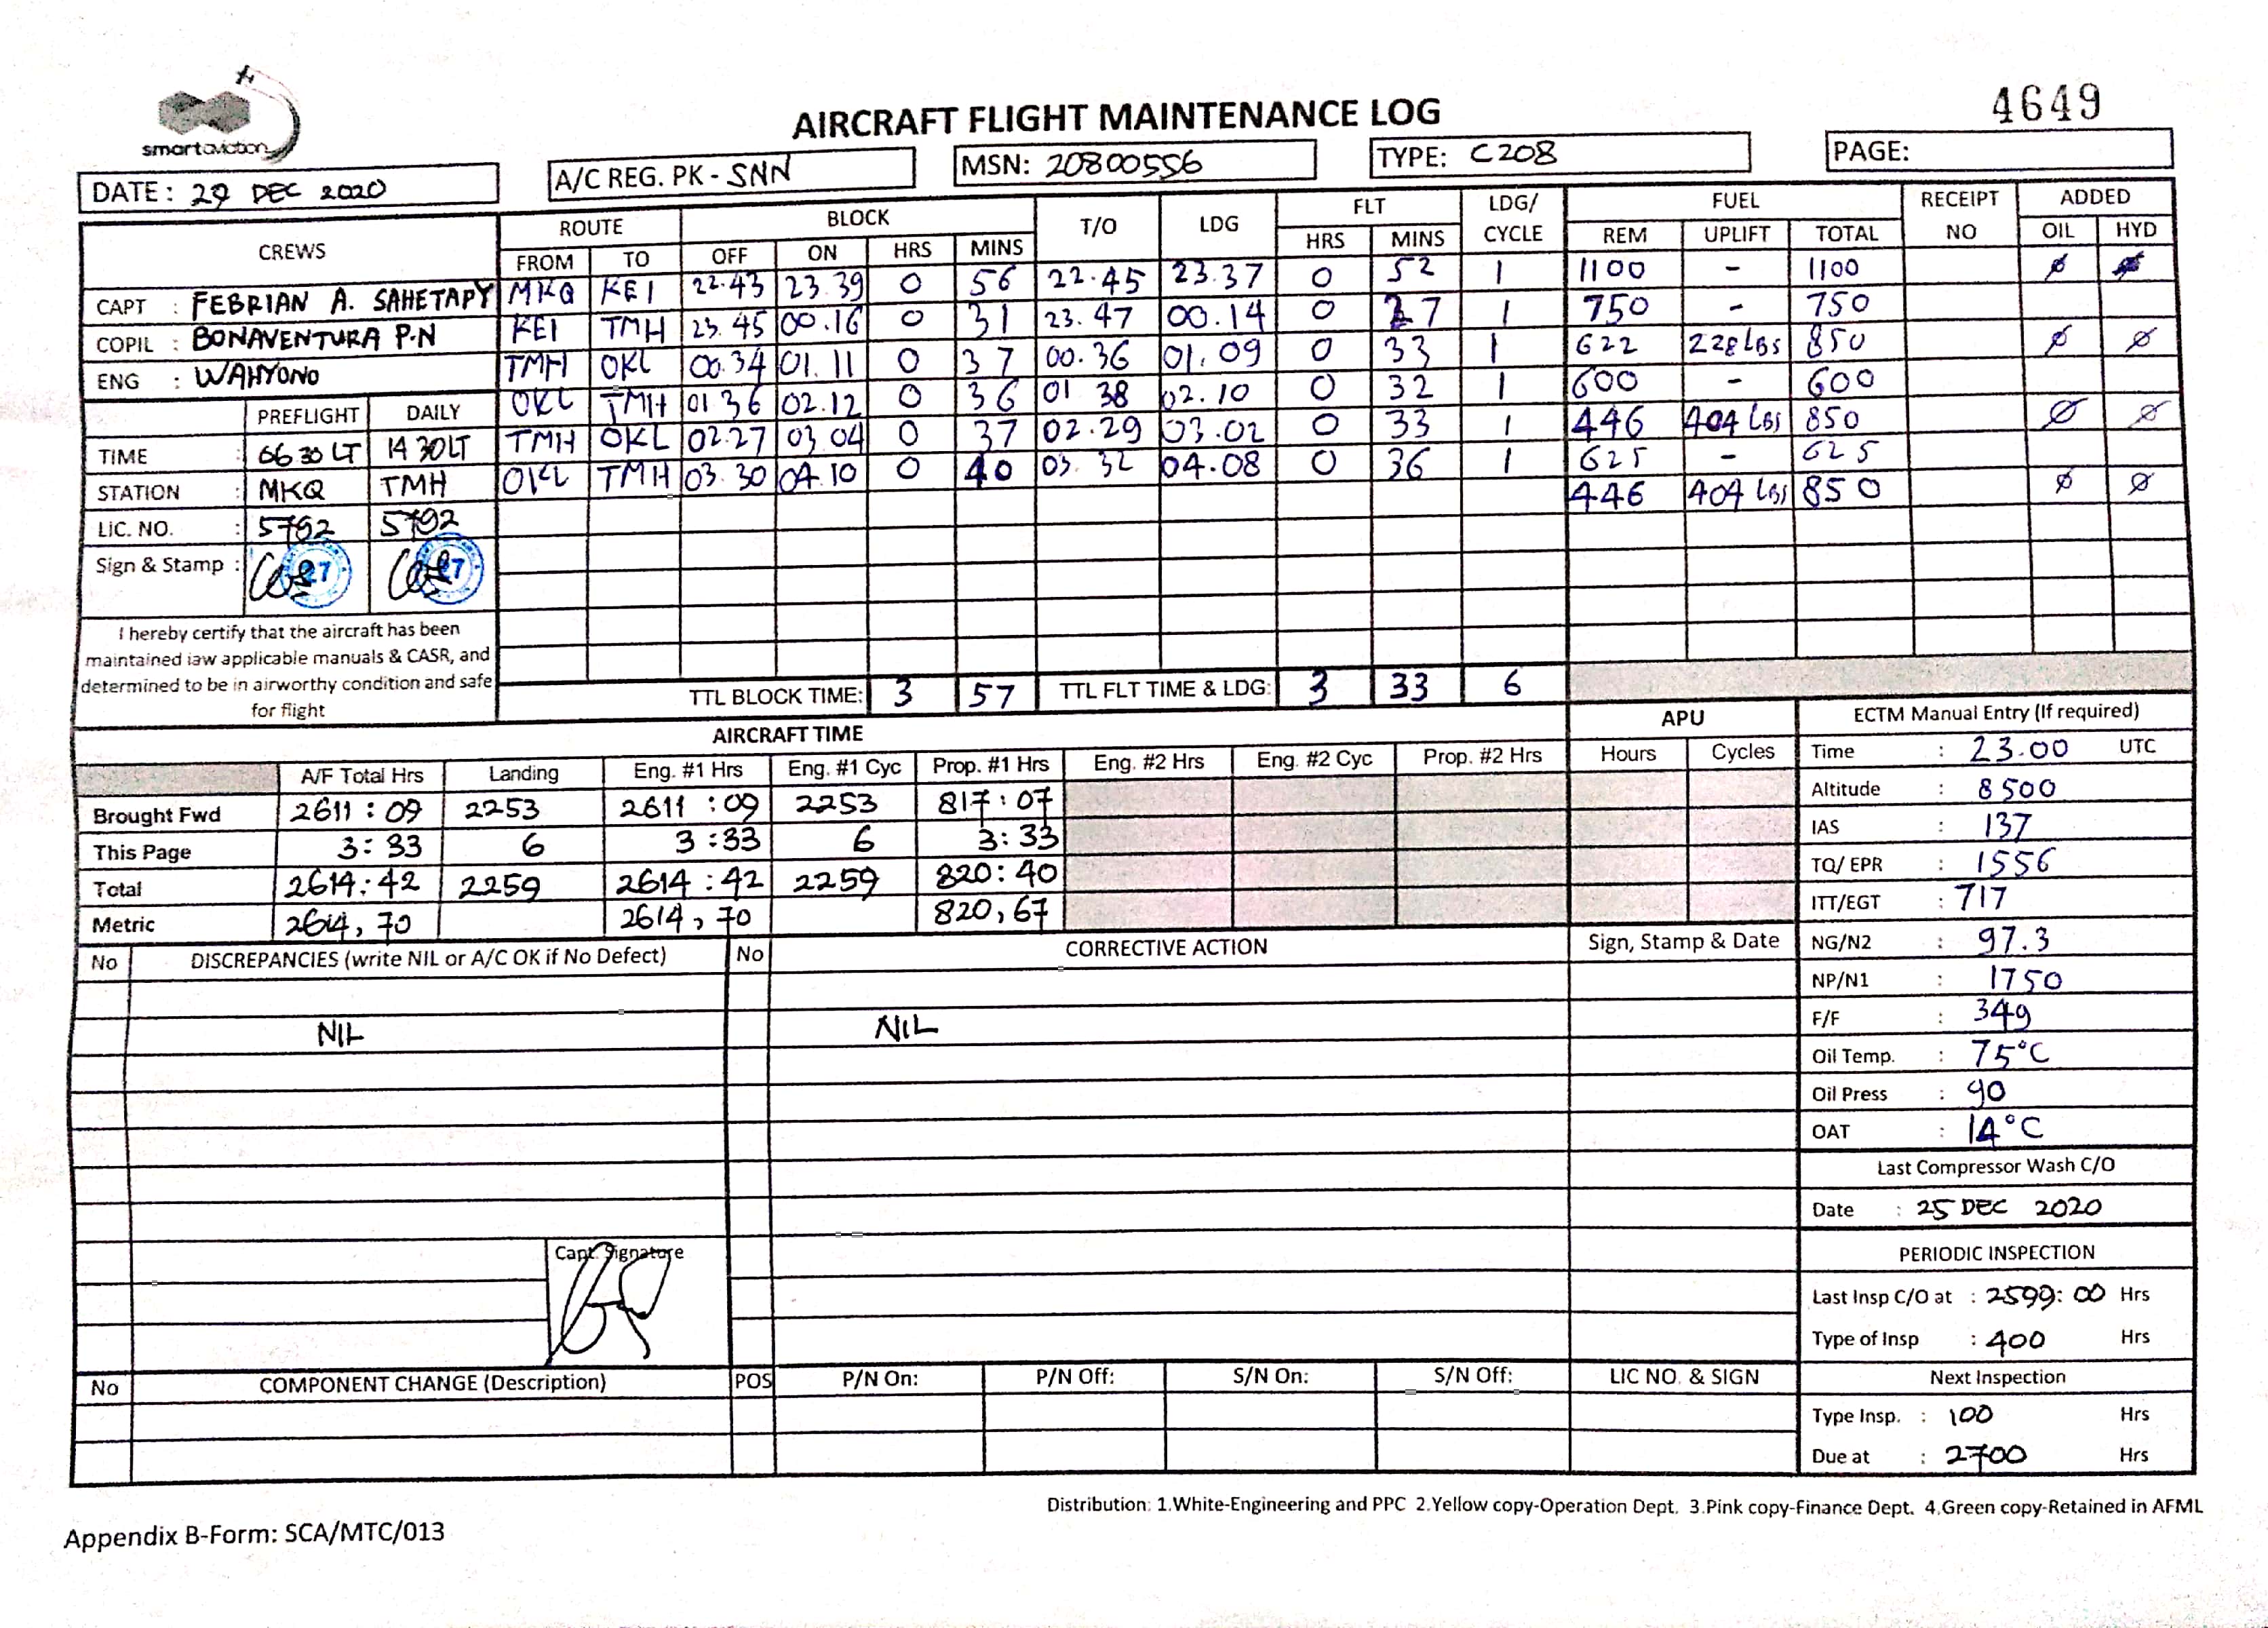 smartaviation
AIRCRAFT FLIGHT MAINTENANCE LOG
4649
DATE : 29 DEC 2020
A/C REG. PK - SNN
MSN: 20800556
TYPE: C208
PAGE:
CREWS ROUTE BLOCK T/O LDG FLT LDG/ CYCLE FUEL RECEIPT NO ADDED
FROM TO OFF ON HRS MINS HRS MINS REM UPLIFT TOTAL OIL HYD
CAPT : FEBRIAN A. SAHETAPY MKQ KEI 22.43 23.39 0 56 22.45 23.37 0 52 1 1100 - 1100 ø ø
COPIL : BONAVENTURA P.N KEI TMH 23.45 00.16 0 31 23.47 00.14 0 27 1 750 - 750
ENG : WAHYONO TMH OKL 00.34 01.11 0 37 00.36 01.09 0 33 1 622 228 LBS 850 ø ø
PREFLIGHT DAILY OKL TMH 01 36 02.12 0 36 01 38 02.10 0 32 1 600 - 600
TIME : 0630 LT 1430 LT TMH OKL 02.27 03 04 0 37 02.29 03.02 0 33 1 446 404 LBS 850 ø ø
STATION : MKQ TMH OKL TMH 03.30 04.10 0 40 03.32 04.08 0 36 1 625 - 625
446 404 LBS 850 ø ø
LIC. NO. : 5792 5792
Sign & Stamp : 27 27
I hereby certify that the aircraft has been
maintained iaw applicable manuals & CASR, and
determined to be in airworthy condition and safe
for flight
TTL BLOCK TIME: 3 57 TTL FLT TIME & LDG: 3 33 6
AIRCRAFT TIME APU ECTM Manual Entry (If required)
A/F Total Hrs Landing Eng. #1 Hrs Eng. #1 Cyc Prop. #1 Hrs Eng. #2 Hrs Eng. #2 Cyc Prop. #2 Hrs Hours Cycles
Brought Fwd 2611 : 09 2253 2611 : 09 2253 817 : 07
This Page 3 : 33 6 3 : 33 6 3 : 33
Total 2614 : 42 2259 2614 : 42 2259 820 : 40
Metric 2614, 70 2614, 70 820, 67
Time : 23.00 UTC
Altitude : 8500
IAS : 137
TQ/ EPR : 1556
ITT/EGT : 717
NG/N2 : 97.3
NP/N1 : 1750
F/F : 349
Oil Temp. : 75°C
Oil Press : 90
OAT : 14°C
No DISCREPANCIES (write NIL or A/C OK if No Defect) No CORRECTIVE ACTION Sign, Stamp & Date
NIL NIL
Capt. Signature
Last Compressor Wash C/O
Date : 25 DEC 2020
PERIODIC INSPECTION
Last Insp C/O at : 2599: 00 Hrs
Type of Insp : 400 Hrs
Next Inspection
Type Insp. : 100 Hrs
Due at : 2700 Hrs
No COMPONENT CHANGE (Description) POS P/N On: P/N Off: S/N On: S/N Off: LIC NO. & SIGN
Distribution: 1.White-Engineering and PPC 2.Yellow copy-Operation Dept. 3.Pink copy-Finance Dept. 4.Green copy-Retained in AFML
Appendix B-Form: SCA/MTC/013